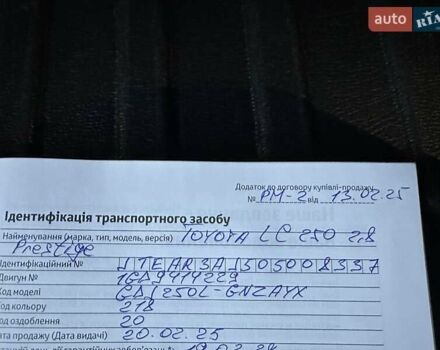 auto RIA
Додаток до договору купівлі-продажу
№ РМ-2 від 13.02.25
Ідентифікація транспортного засобу
Найменування (марка, тип, модель, версія) TOYOTA LC 250 2.8
Prestige
Ідентифікаційний № JTEAR3AJ305008337
Двигун № 1GD9414229
Код моделі GDJ250L-GNZAYX
Код кольору 218
Код оздоблення 20
Дата продажу (Дата видачі) 20.02.25